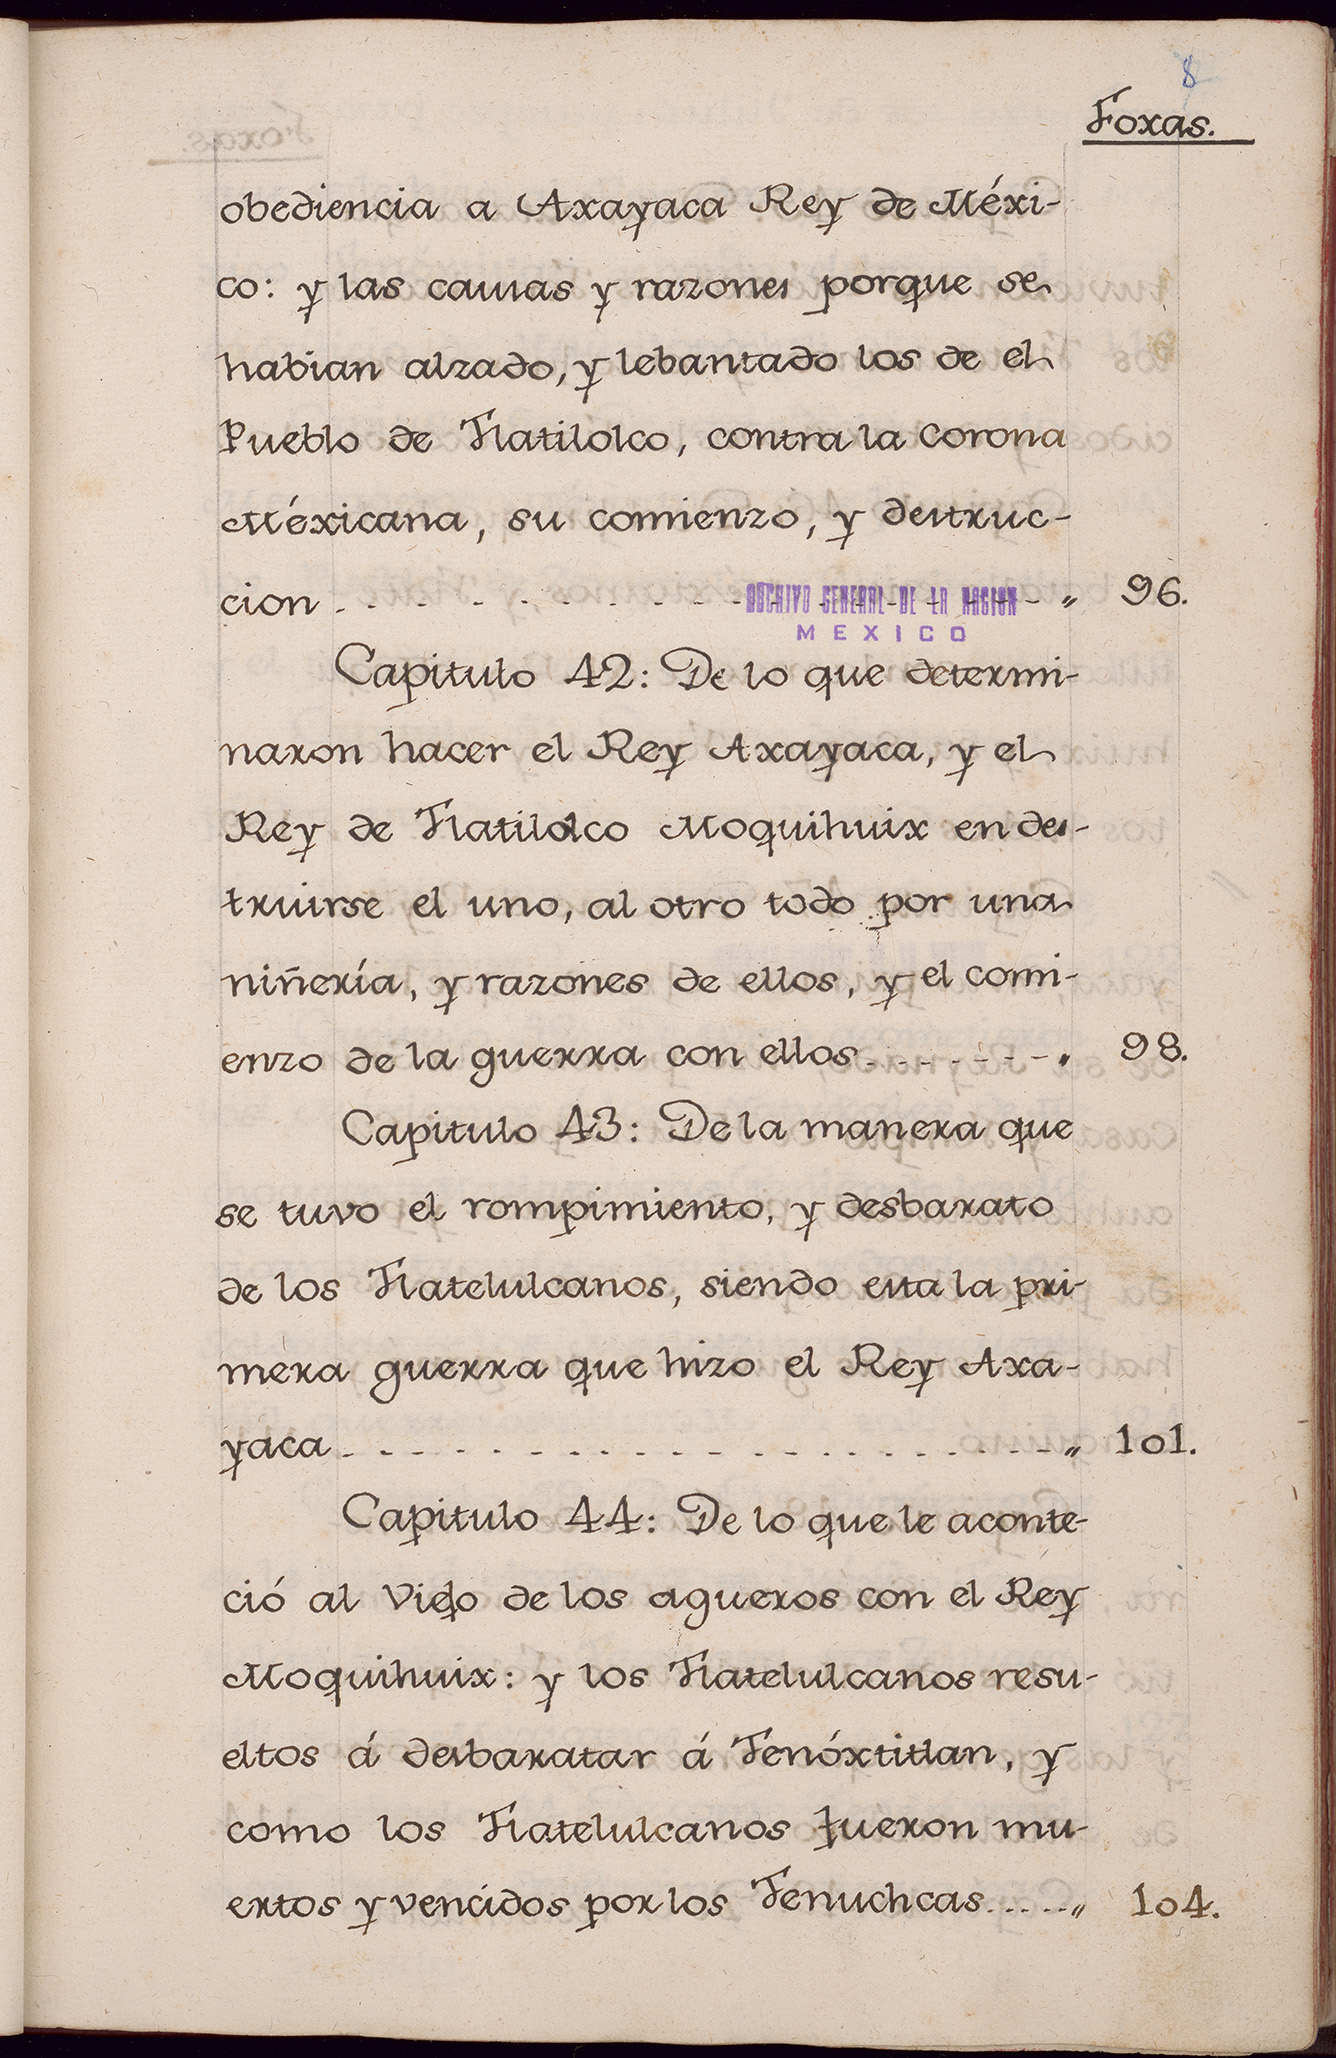 8
Foxas.
obediencia a Axayaca Rey de Méxi-
co: y las causas y razones porque se
habian alzado, y lebantado los de el
Pueblo de Tlatilolco, contra la corona
Méxicana, su comienzo, y destruc-
cion - - - - - - - - - - - - - - - - - - - " 96.
ARCHIVO GENERAL DE LA NACION
MEXICO
Capitulo 42: De lo que determi-
naron hacer el Rey Axayaca, y el
Rey de Tlatilolco Moquihuix en des-
truirse el uno, al otro todo por una
niñería, y razones de ellos, y el comi-
enzo de la guerra con ellos - - - - - - - " 98.
Capitulo 43: De la manera que
se tuvo el rompimiento, y desbarato
de los Tlatelulcanos, siendo esta la pri-
mera guerra que hizo el Rey Axa-
yaca - - - - - - - - - - - - - - - - - - - " 101.
Capitulo 44: De lo que le aconte-
ció al Viejo de los agueros con el Rey
Moquihuix: y los Tlatelulcanos resu-
eltos á desbaratar á Tenóxtitlan, y
como los Tlatelulcanos fueron mu-
ertos y vencidos por los Tenuchcas....." 104.